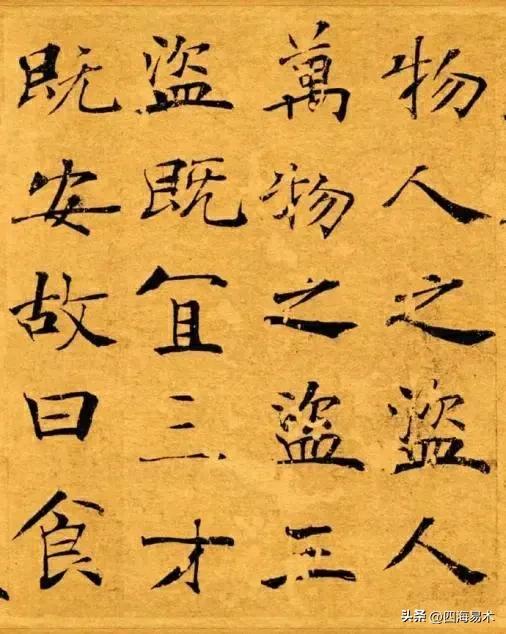 物人之盜人
萬物之盜三
盜既宜三才
既安故曰食
头条 @四海易木